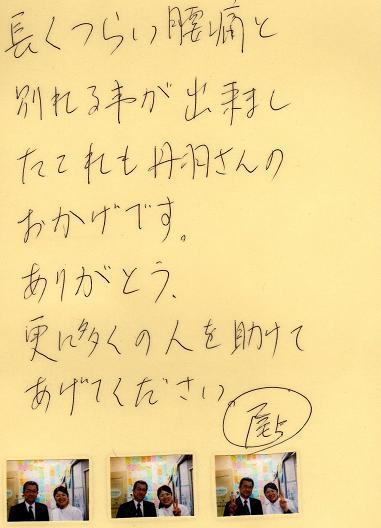 長くつらい腰痛と
別れる事が出来まし
たこれも丹羽さんの
おかげです。
ありがとう、
更に多くの人を助けて
あげてください。
尾上